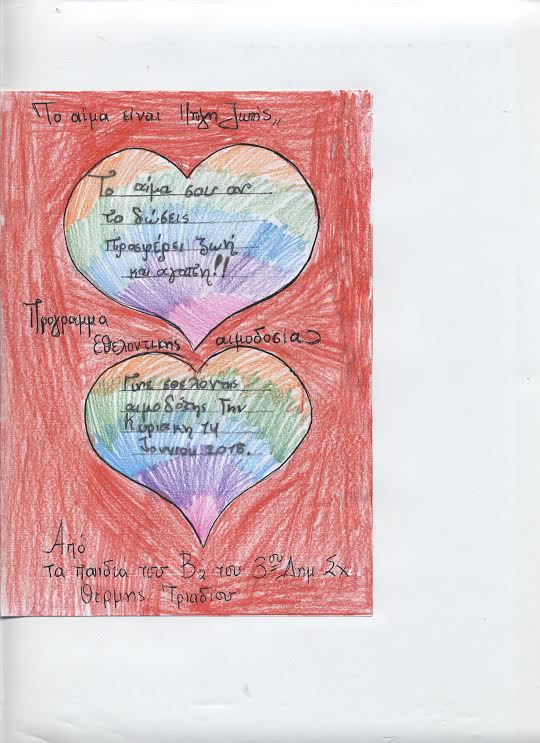 Το αίμα είναι Πηγη Ζωής,,
Το αίμα σου αν
το δώσεις
Προσφέρει ζωή
και αγαπη!!
Πρόγραμμα
Εθελοντικης αιμοδοσιας
Γινε εθελοντης
αιμοδότης Την
Κυριακη 14
Ιουνιου 2015.
Από
τα παιδιά του Β2 του 3ου Δημ Σχ
Θέρμης Τριαδίου